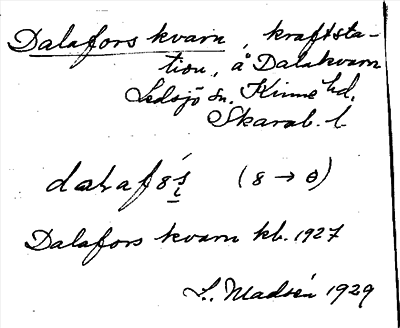 Dalafors kvarn, kraftsta-
tion, å Dalakvarn
Ledsjö sn. Kinne hd.
Skarab. l.
dalaf8ṣ́ (8 → ɵ)
Dalafors kvarn kb. 1927
L. Madsén 1929